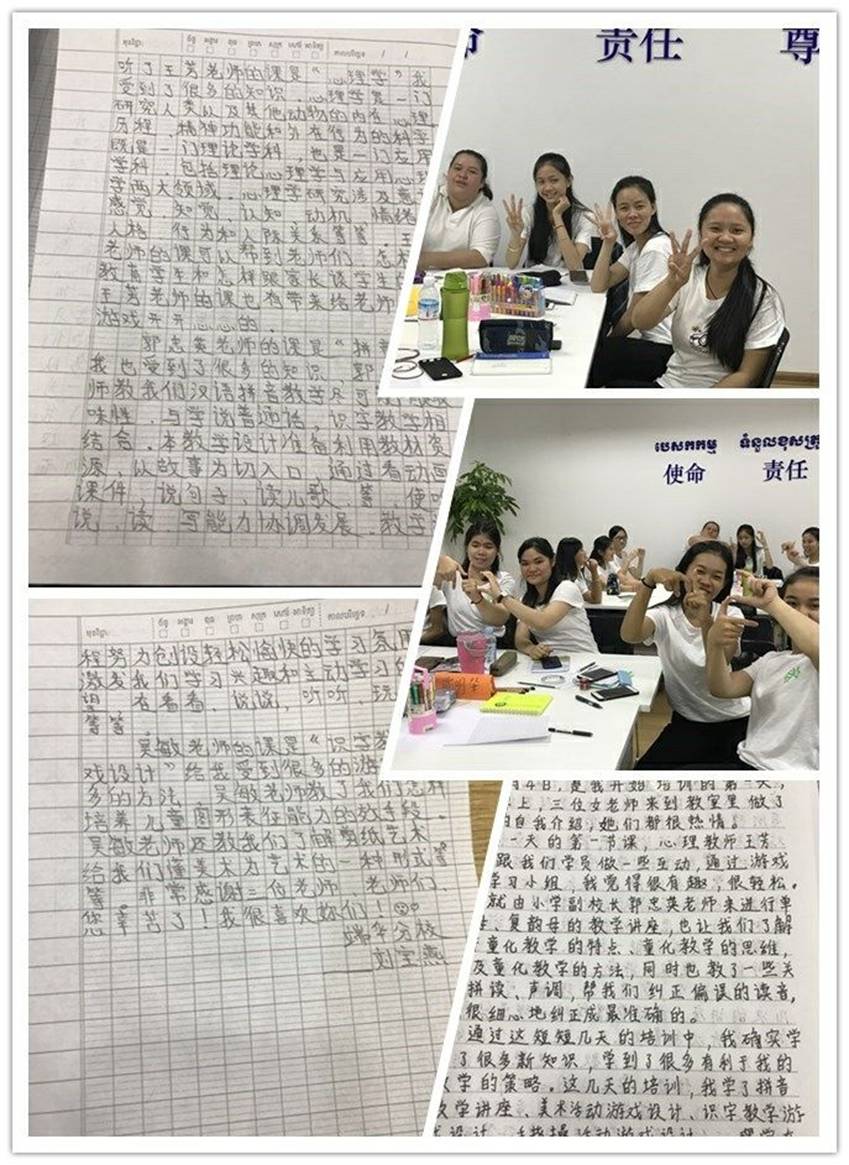 听了王芳老师的课是“心理学”我
受到了很多的知识.心理学是一门
研究人类以及其他动物的内在心理
历程、精神功能和外在行为的科学
既是一门理论学科,也是一门应用
学科.包括理论心理学与应用心理
学两大领域.心理学研究涉及意
感觉、知觉、认知、动机、情绪
人格、行为和人际关系等等.王
老师的课可以帮到老师们,怎样
教育学生和怎样跟家长谈学生的
王芳老师的课也有带来给老师
游戏开开心心的.
郭忠英老师的课是“拼音
我也受到了很多的知识,郭
师教我们汉语拼音教学尽可
味性.与学说普通话,识字教学相
结合.本教学设计准备利用教材资
源,以故事为切入口.通过看动画
课件,说句子、读儿歌、等,使
说、读、写能力协调发展.教学
程努力创设轻松愉快的学习氛围
激发我们学习兴趣和主动学习的
望.在看看、说说,听听、玩
等等.
吴敏老师的课是“识字教
戏设计”给我受到很多的游
多的方法.吴敏老师教了我们怎样
培养儿童图形表征能力的教手段.
吴敏老师还教我们了解剪纸艺术
给我们懂美术为艺术的一种形式等
等。非常感谢三位老师、老师们、
您辛苦了!我很喜欢妳们!
端华分校
刘宝燕
责任
尊
បេសកកម្ម ទំនួលខុសត្រូវ
使命 责任
月4日,是我开始培训的第一天,
上,三位女老师来到教室里做了
自我介绍,她们都很热情。
一天的第一节课,心理教师王芳
跟我们学员做一些互动,通过游戏
学习小组,我觉得很有趣,很轻松。
就由小学副校长郭忠英老师来进行单
、复韵母的教学讲座,也让我们了解
童化教学的特点、童化教学的思维,
及童化教学的方法,同时也教了一些关
拼读、声调,帮我们纠正偏误的读音,
很细心地纠正成最准确的。
通过这短短几天的培训中,我确实学
了很多新知识,学到了很多有利于我的
教学的策略。这几天的培训,我学了拼音
教学讲座、美术活动游戏设计、识字教学游